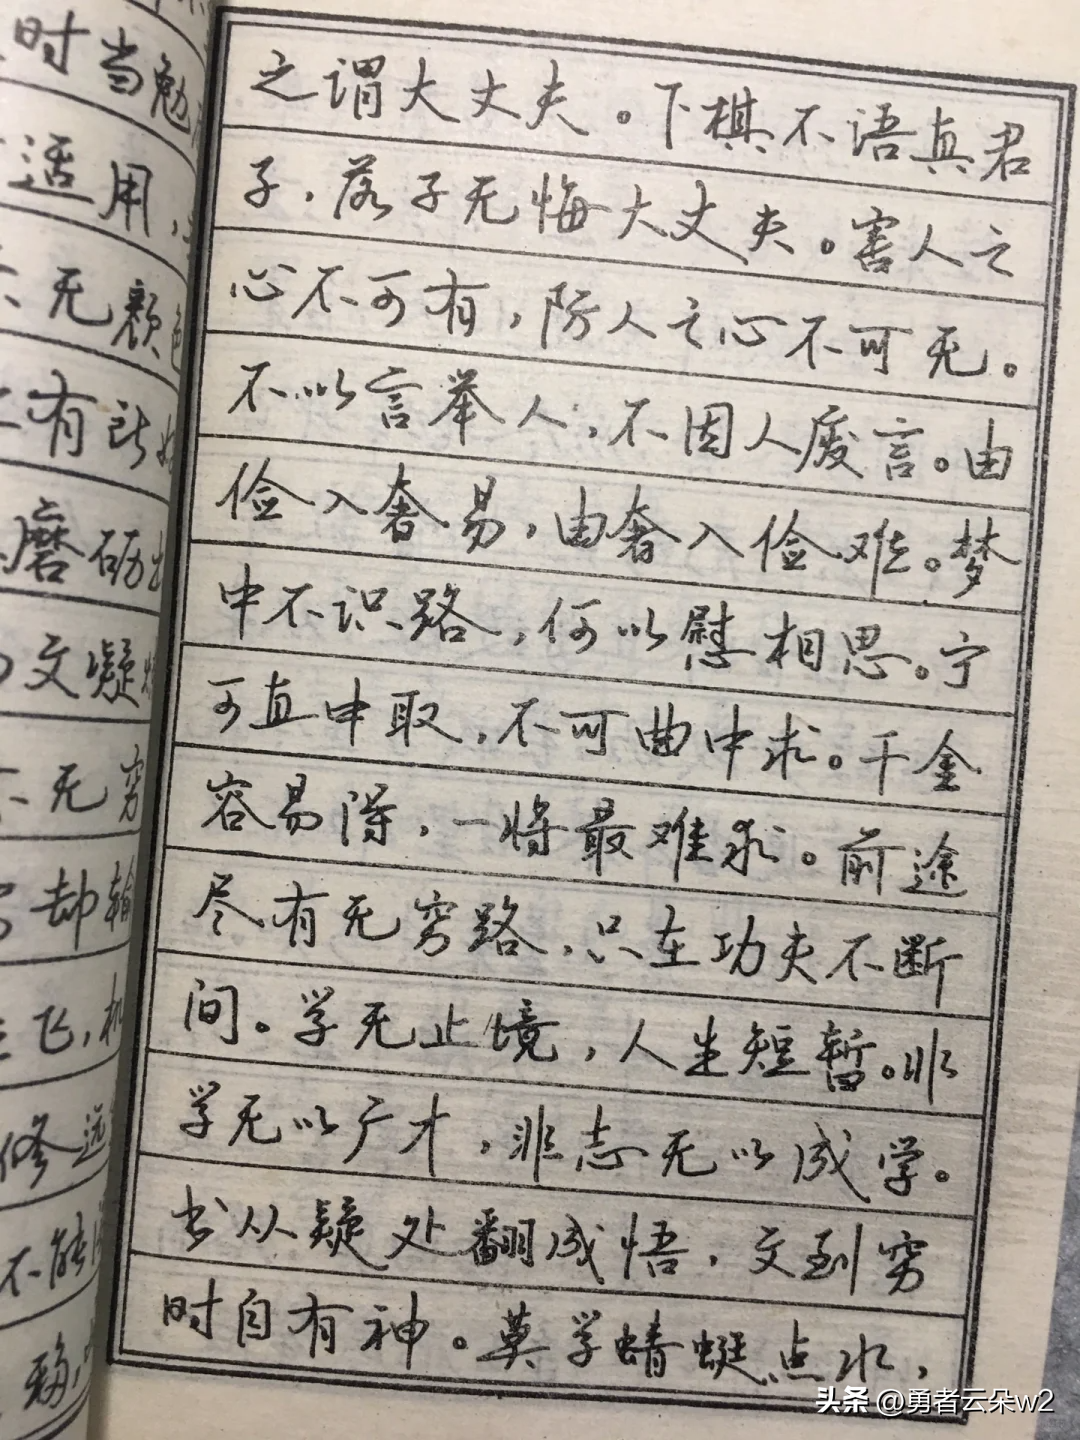 时当勉
适用，
无颜色
有
磨砺出
文凝
无穷
却输
飞，机
修远
不能
之谓大丈夫。下棋不语真君
子，落子无悔大丈夫。害人之
心不可有，防人之心不可无。
不以言举人，不因人废言。由
俭入奢易，由奢入俭难。梦
中不识路，何以慰相思。宁
可直中取，不可曲中求。千金
容易得，一将最难求。前途
尽有无穷路，只在功夫不断
间。学无止境，人生短暂。非
学无以广才，非志无以成学。
书从疑处翻成悟，文到穷
时自有神。莫学蜻蜓点水，
头条 @勇者云朵w2